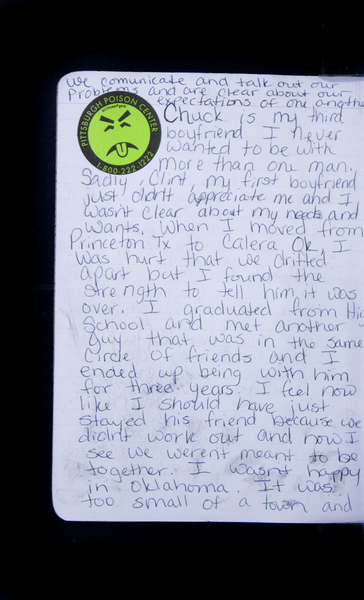 we comunicate and talk out our
problems and are clear about our
expectations of one another
PITTSBURGH POISON CENTER
1-800-222-1222
Chuck is my third
boyfriend I never
wanted to be with
more than one man.
Sadly, Clint, my first boyfriend
just didn't appreciate me and I
wasnt clear about my needs and
wants. When I moved from
Princeton Tx to Calera Ok I
was hurt that we drifted
apart but I found the
strength to tell him it was
over. I graduated from Hig
School and met another
guy that was in the same
circle of friends and I
ended up being with him
for three years. I feel now
like I should have just
stayed his friend because we
didnt work out and now I
see we werent meant to be
together. I wasnt happy
in Oklahoma. It was
too small of a town and